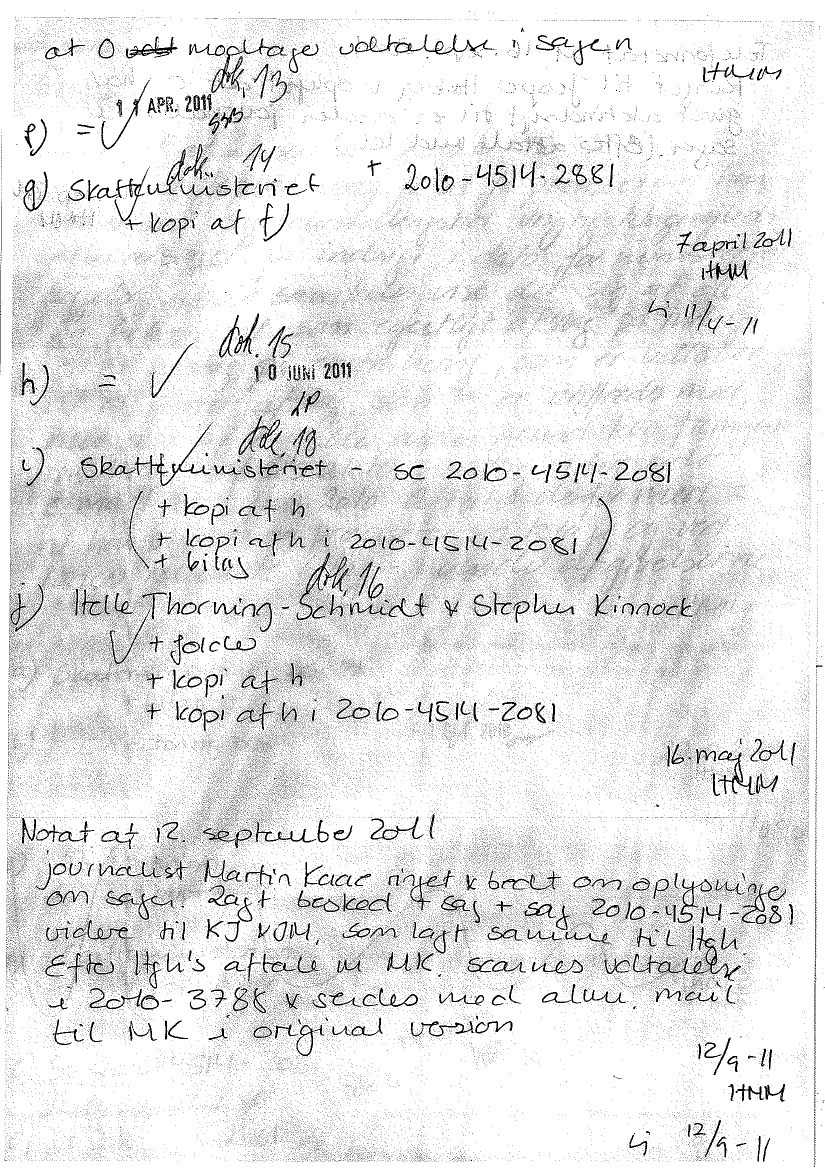 at 0 modtage udtalelse i sagen
HMM
dok. 13
11 APR. 2011
f) = ✓
dok. 14
g) Skatteministeriet + 2010-4514-2881
+ kopi af f)
7 april 2011
HMM
11/4-11
dok. 15
10 JUNI 2011
h) = ✓
LP
dok. 18
i) Skatteministeriet - sc 2010-4514-2081
(+ kopi af h
+ kopi af h i 2010-4514-2081)
+ bilag
dok. 16
j) Helle Thorning-Schmidt & Stephen Kinnock
✓ + folder
+ kopi af h
+ kopi af h i 2010-4514-2081
16. maj 2011
HMM
Notat af 12. september 2011
journalist Martin Kaae ringet & bedt om oplysninge
om sagen. Lagt besked + sag + sag 2010-4514-2081
videre til KJ & JM, som lagt samme til Hgh
Efter Hgh's aftale m MK. scannes udtalelse
i 2010-3788 & sendes med alm. mail
til MK i original version
12/9-11
HMM
12/9-11